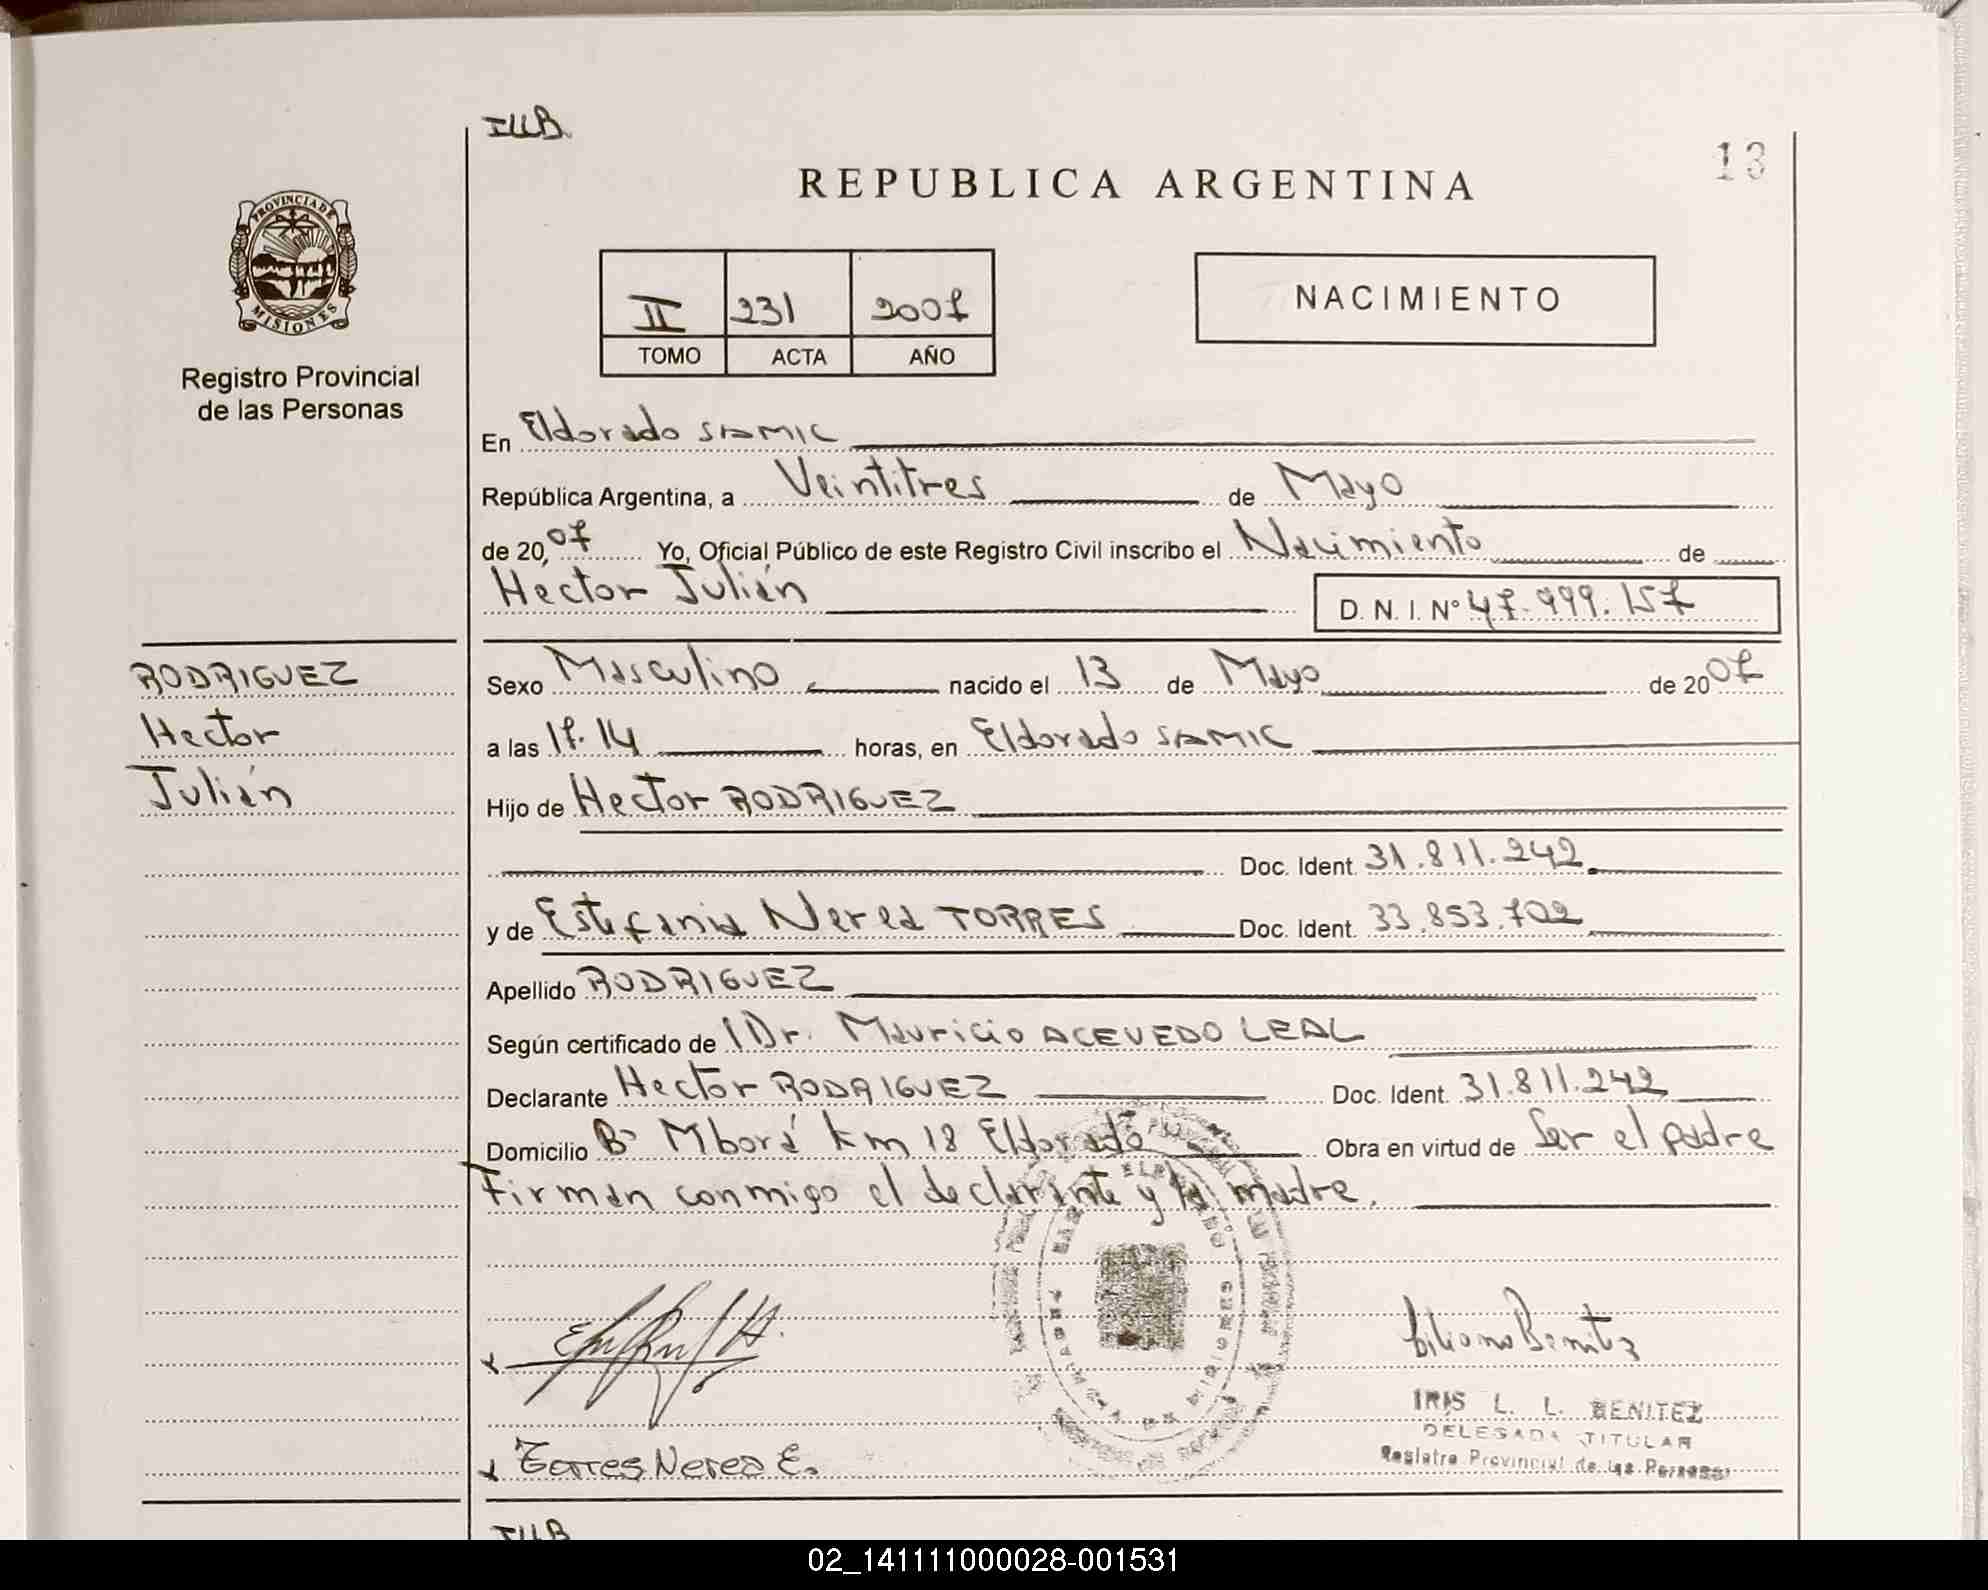 IIIB
13
REPUBLICA ARGENTINA
PROVINCIA DE
MISIONES
Registro Provincial
de las Personas
II 231 2007
TOMO ACTA AÑO
NACIMIENTO
En Eldorado SAMIC
República Argentina, a Veintitres de Mayo
de 20 07 Yo, Oficial Público de este Registro Civil inscribo el Nacimiento de
Héctor Julián D. N. I. Nº 47.999.157
RODRIGUEZ
Hector
Julián
Sexo Masculino nacido el 13 de Mayo de 20 07
a las 17.14 horas, en Eldorado SAMIC
Hijo de Hector RODRIGUEZ
Doc. Ident. 31.811.242
y de Estefania Nerea TORRES Doc. Ident. 33.853.702
Apellido RODRIGUEZ
Según certificado de Dr. Mauricio ACEVEDO LEAL
Declarante Hector RODRIGUEZ Doc. Ident. 31.811.242
Domicilio Bº Mborá km 18 Eldorado Obra en virtud de Ser el padre
Firman conmigo el declarante y la madre.
Torres Nerea E.
IRIS L. L. BENITEZ
DELEGADA TITULAR
Registro Provincial de las Personas
02_141111000028-001531